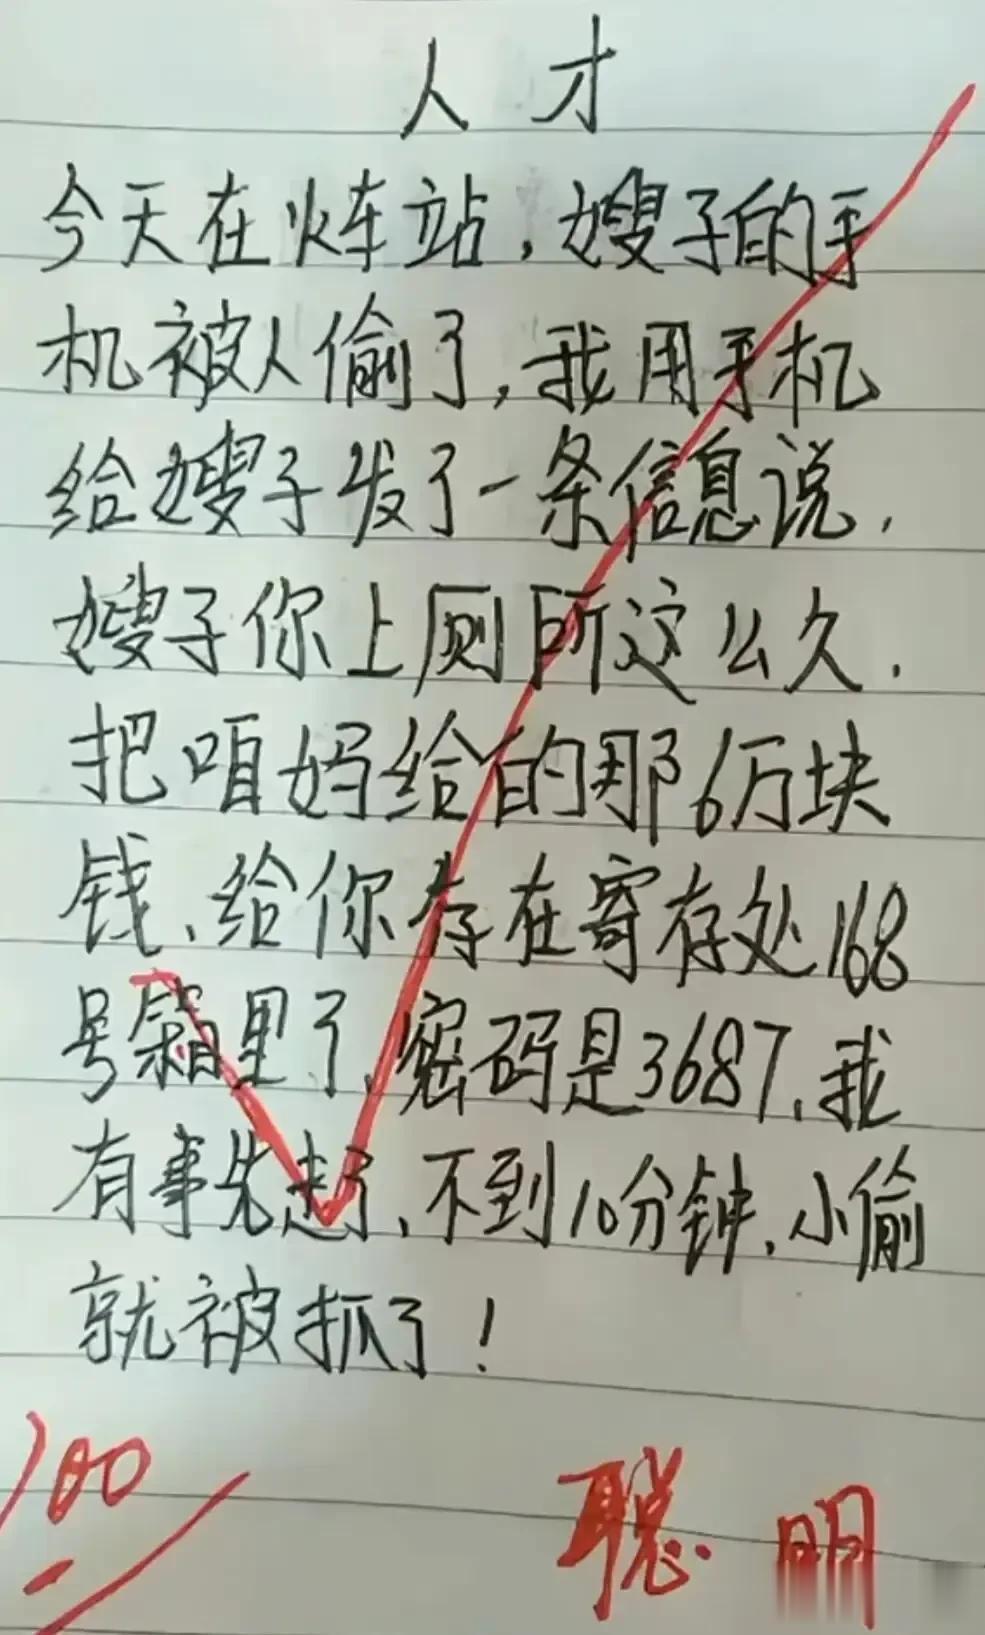 人才
今天在火车站，嫂子的手
机被人偷了，我用手机
给嫂子发了一条信息说，
嫂子你上厕所这么久．
把咱妈给的那6万块
钱、给你存在寄存处168
号箱里了，密码是3687、我
有事先走了、不到10分钟、小偷
就被抓了！
100
聪明